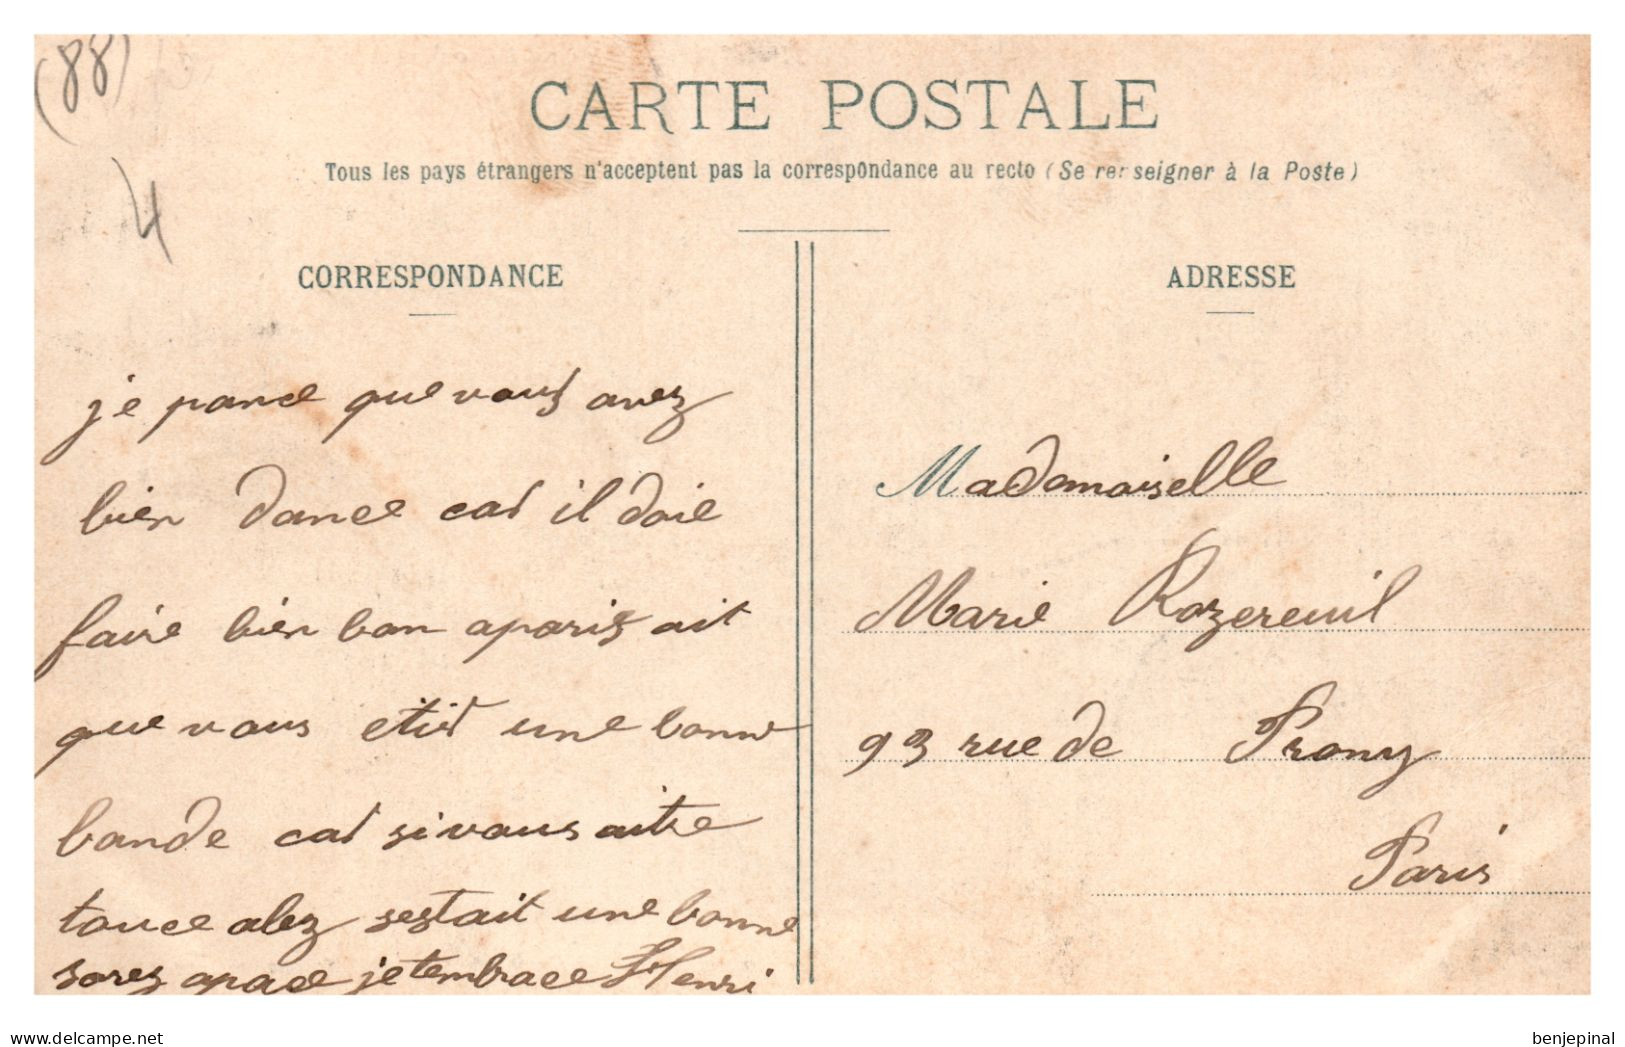 (88)
4
CARTE POSTALE
Tous les pays étrangers n'acceptent pas la correspondance au recto (Se renseigner à la Poste)
CORRESPONDANCE
je pance que vous avez
bien dance car il doie
faire bien bon a pariz ait
que vous etid une bonne
bande car si vous aitre
touce alez sestait une bonne
sorez apace je tembrace Henri
ADRESSE
Mademoiselle
Marie Rozereuil
93 rue de Prony
Paris
www.delcampe.net
benjepinal